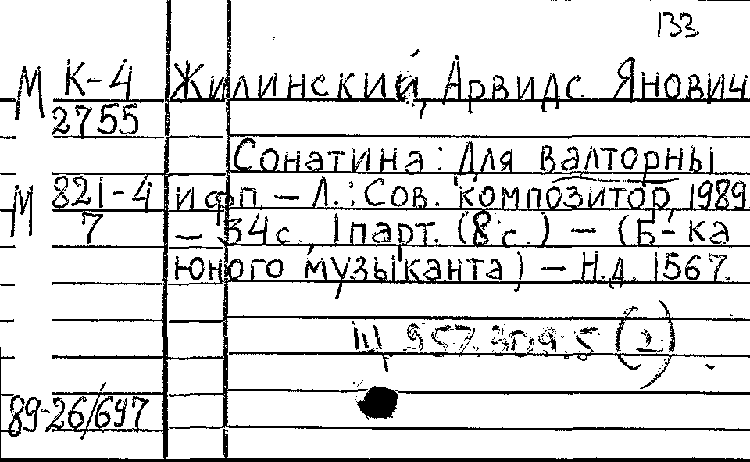 133
М К-4 Жилинский, Арвидс Янович
2755
Сонатина: Для валторны
М 821-4 и фп. – Л.: Сов. композитор, 1989
7 – 34с., 1парт. (8с.) – (Б-ка
юного музыканта) – Н.д. 1567.
Щ 957.309.5 (2)
89-26/697